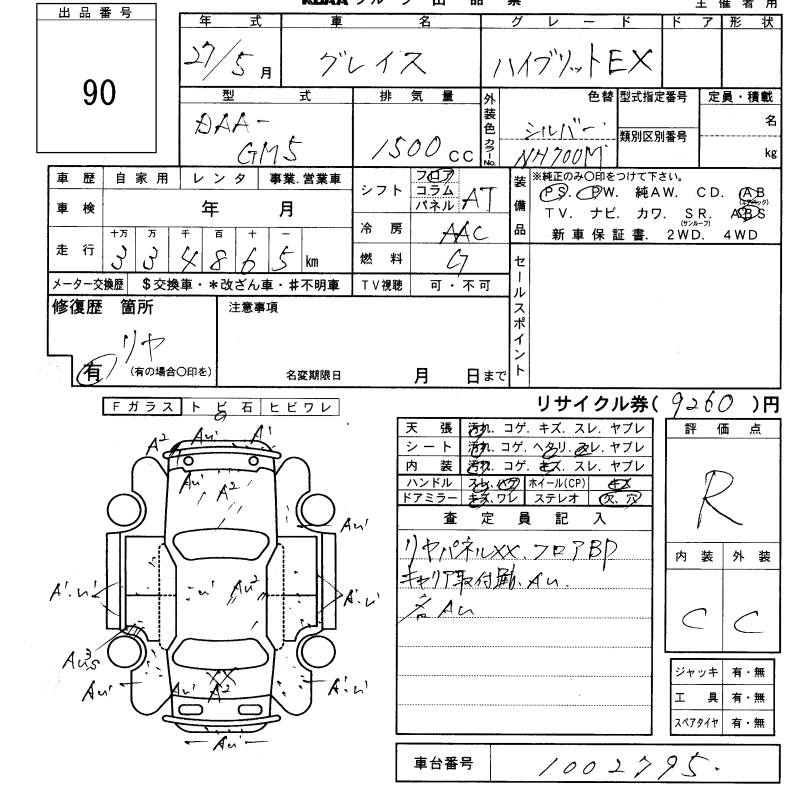 出品番号
90
年 式
27/5月
車 名
グレイス
グレード
ハイブリットEX
ドア
形 状
型 式
DAA-
GM5
排 気 量
1500 cc
外装色 カラーNo.
色替
シルバー
NH700M
型式指定番号
類別区別番号
定員・積載
名
kg
車 歴 自家用 レンタ 事業.営業車
車 検 年 月
走 行 十万 万 千 百 十 一
3 3 4 8 6 5 km
メーター交換歴 $交換車・*改ざん車・#不明車
シフト フロア コラム パネル AT
冷 房 AAC
燃 料 G
TV視聴 可・不可
装備品
※純正のみ〇印をつけて下さい。
PS. PW. 純AW. CD. AB
(エアバック)
TV. ナビ. カワ. SR. ABS
(サンルーフ)
新車保証書. 2WD. 4WD
セールスポイント
修復歴 箇所
リヤ
有 (有の場合〇印を)
注意事項
名変期限日 月 日まで
リサイクル券( 9260 )円
Fガラス トビ石 ヒビワレ
天 張 汚れ. コゲ. キズ. スレ. ヤブレ
シート 汚れ. コゲ. ヘタリ. スレ. ヤブレ
内 装 汚れ. コゲ. キズ. スレ. ヤブレ
ハンドル スレ. ハゲ ホイール(CP) キズ
ドアミラー キズ. ワレ ステレオ 欠. 穴
査定員記入
リヤパネルXX. フロアBP
キャリア取付跡. Au.
各Au
評価点
R
内 装 外 装
C C
ジャッキ 有・無
工 具 有・無
スペアタイヤ 有・無
車台番号 1002795.
A2 Au' A'
Au' A2
Au'
A'.u' u' Au2 A'.u'
Au3s
Au' Au' A2 A'.u'
Au'